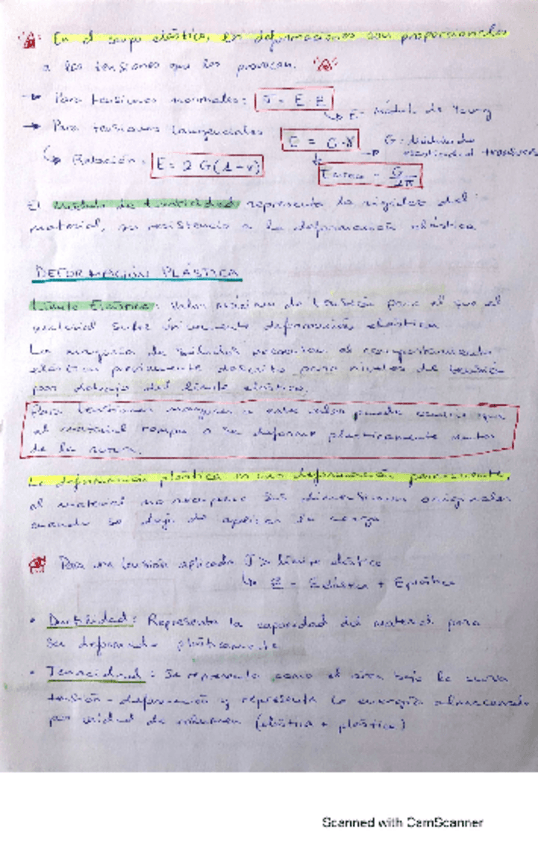 En el campo elástico, las deformaciones son proporcionales
a las tensiones que las provocan.
→ Para tensiones normales: σ = E · ε
↳ E - Módulo de Young
→ Para tensiones tangenciales
= G · γ
G: Módulo de
↳ Relación: E = 2 G (1 - ν)
El módulo de representa la rigidez del
material, su resistencia a la deformación elástica
DEFORMACIÓN PLÁSTICA
Límite Elástico: valor máximo de tensión para el que el
material sufre únicamente deformación elástica.
La mayoría de sólidos el comportamiento
elástico previamente descrito para niveles de tensión
por debajo del límite elástico.
Para tensiones mayores a este valor puede ocurrir que
el material rompa o se deforme plásticamente antes
de la rotura.
La deformación plástica es una deformación permanente,
el material no recupera sus dimensiones originales
cuando se deja de aplicar la carga
Para una tensión aplicada > límite elástico
↳ ε = Eelástica + Eplástica
• Ductilidad: Representa la capacidad del material para
ser deformado plásticamente
• Tenacidad: Se representa como el área bajo la curva
tensión-deformación y representa la energía almacenada
por unidad de volumen (elástica + plástica)
Scanned with CamScanner